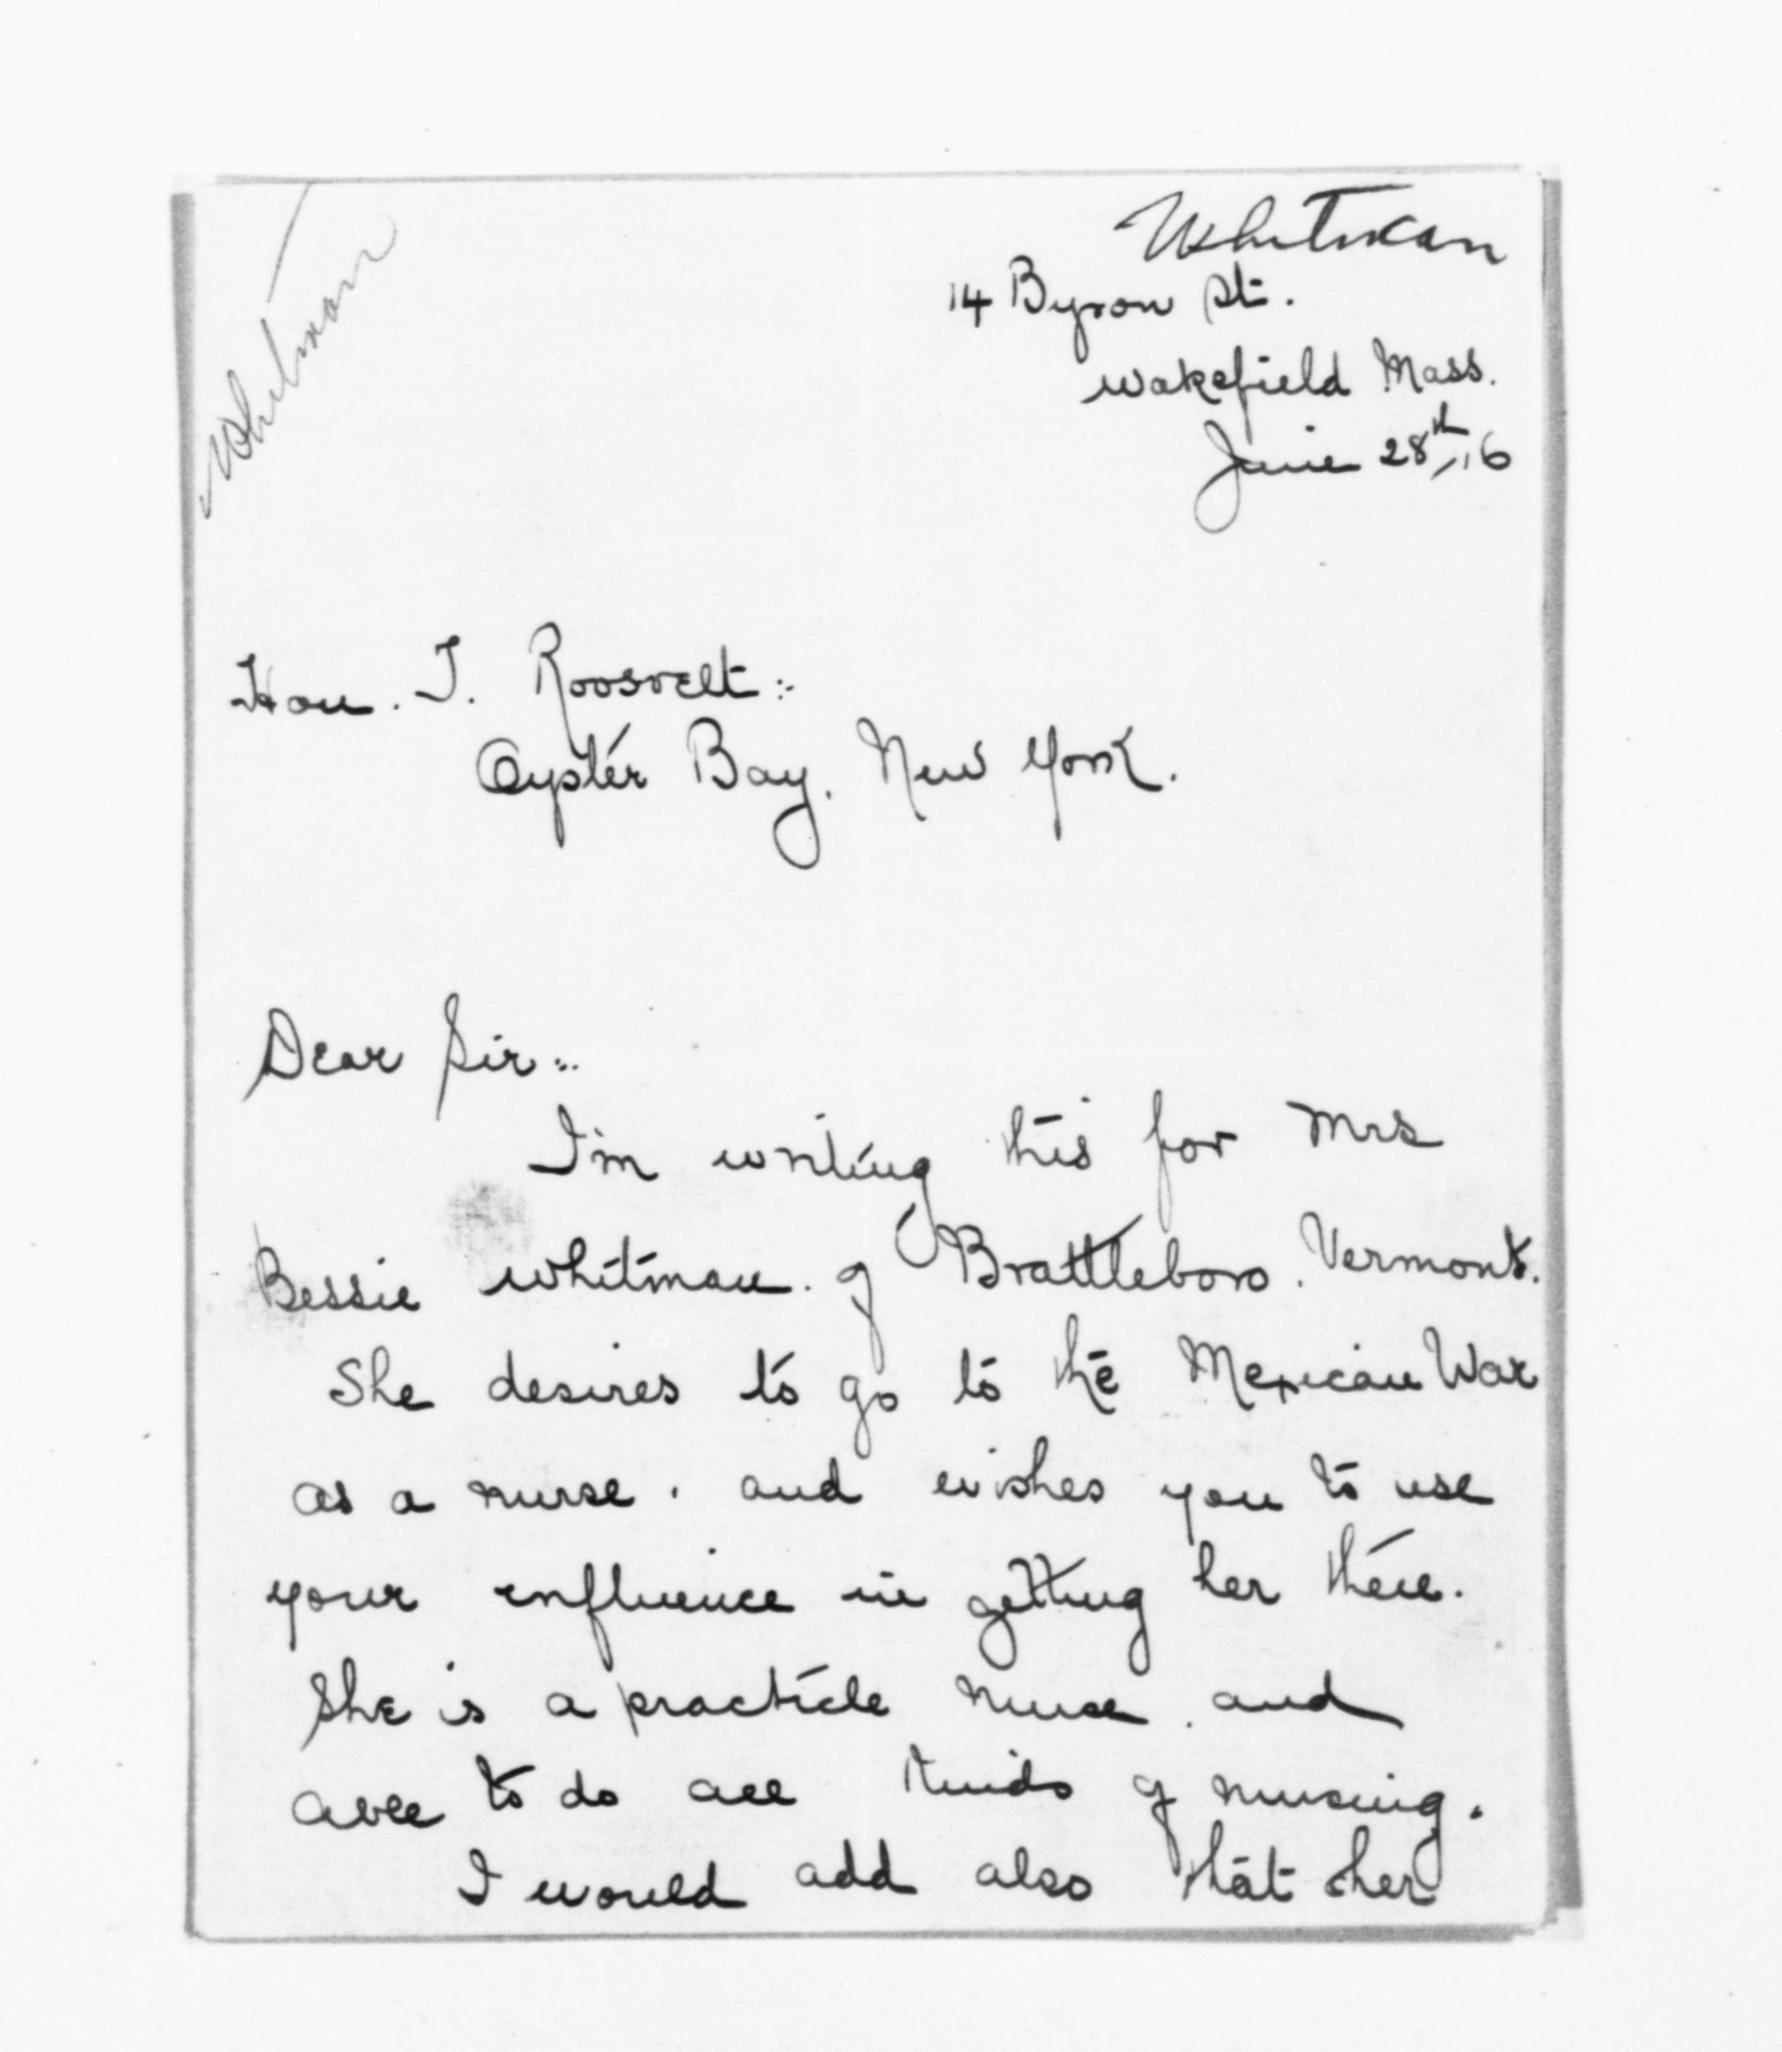 Whitman
Whitman
14 Byron St.
Wakefield Mass.
June 28th/16
Hon. T. Roosvelt:-
Oyster Bay. New York.
Dear Sir:-
I'm writing this for Mrs
Bessie Whitman. of Brattleboro. Vermont.
She desires to go to the Mexican War
as a nurse. and wishes you to use
your influence in getting her there.
She is a practicle nurse. and
able to do all kinds of nursing.
I would add also that her